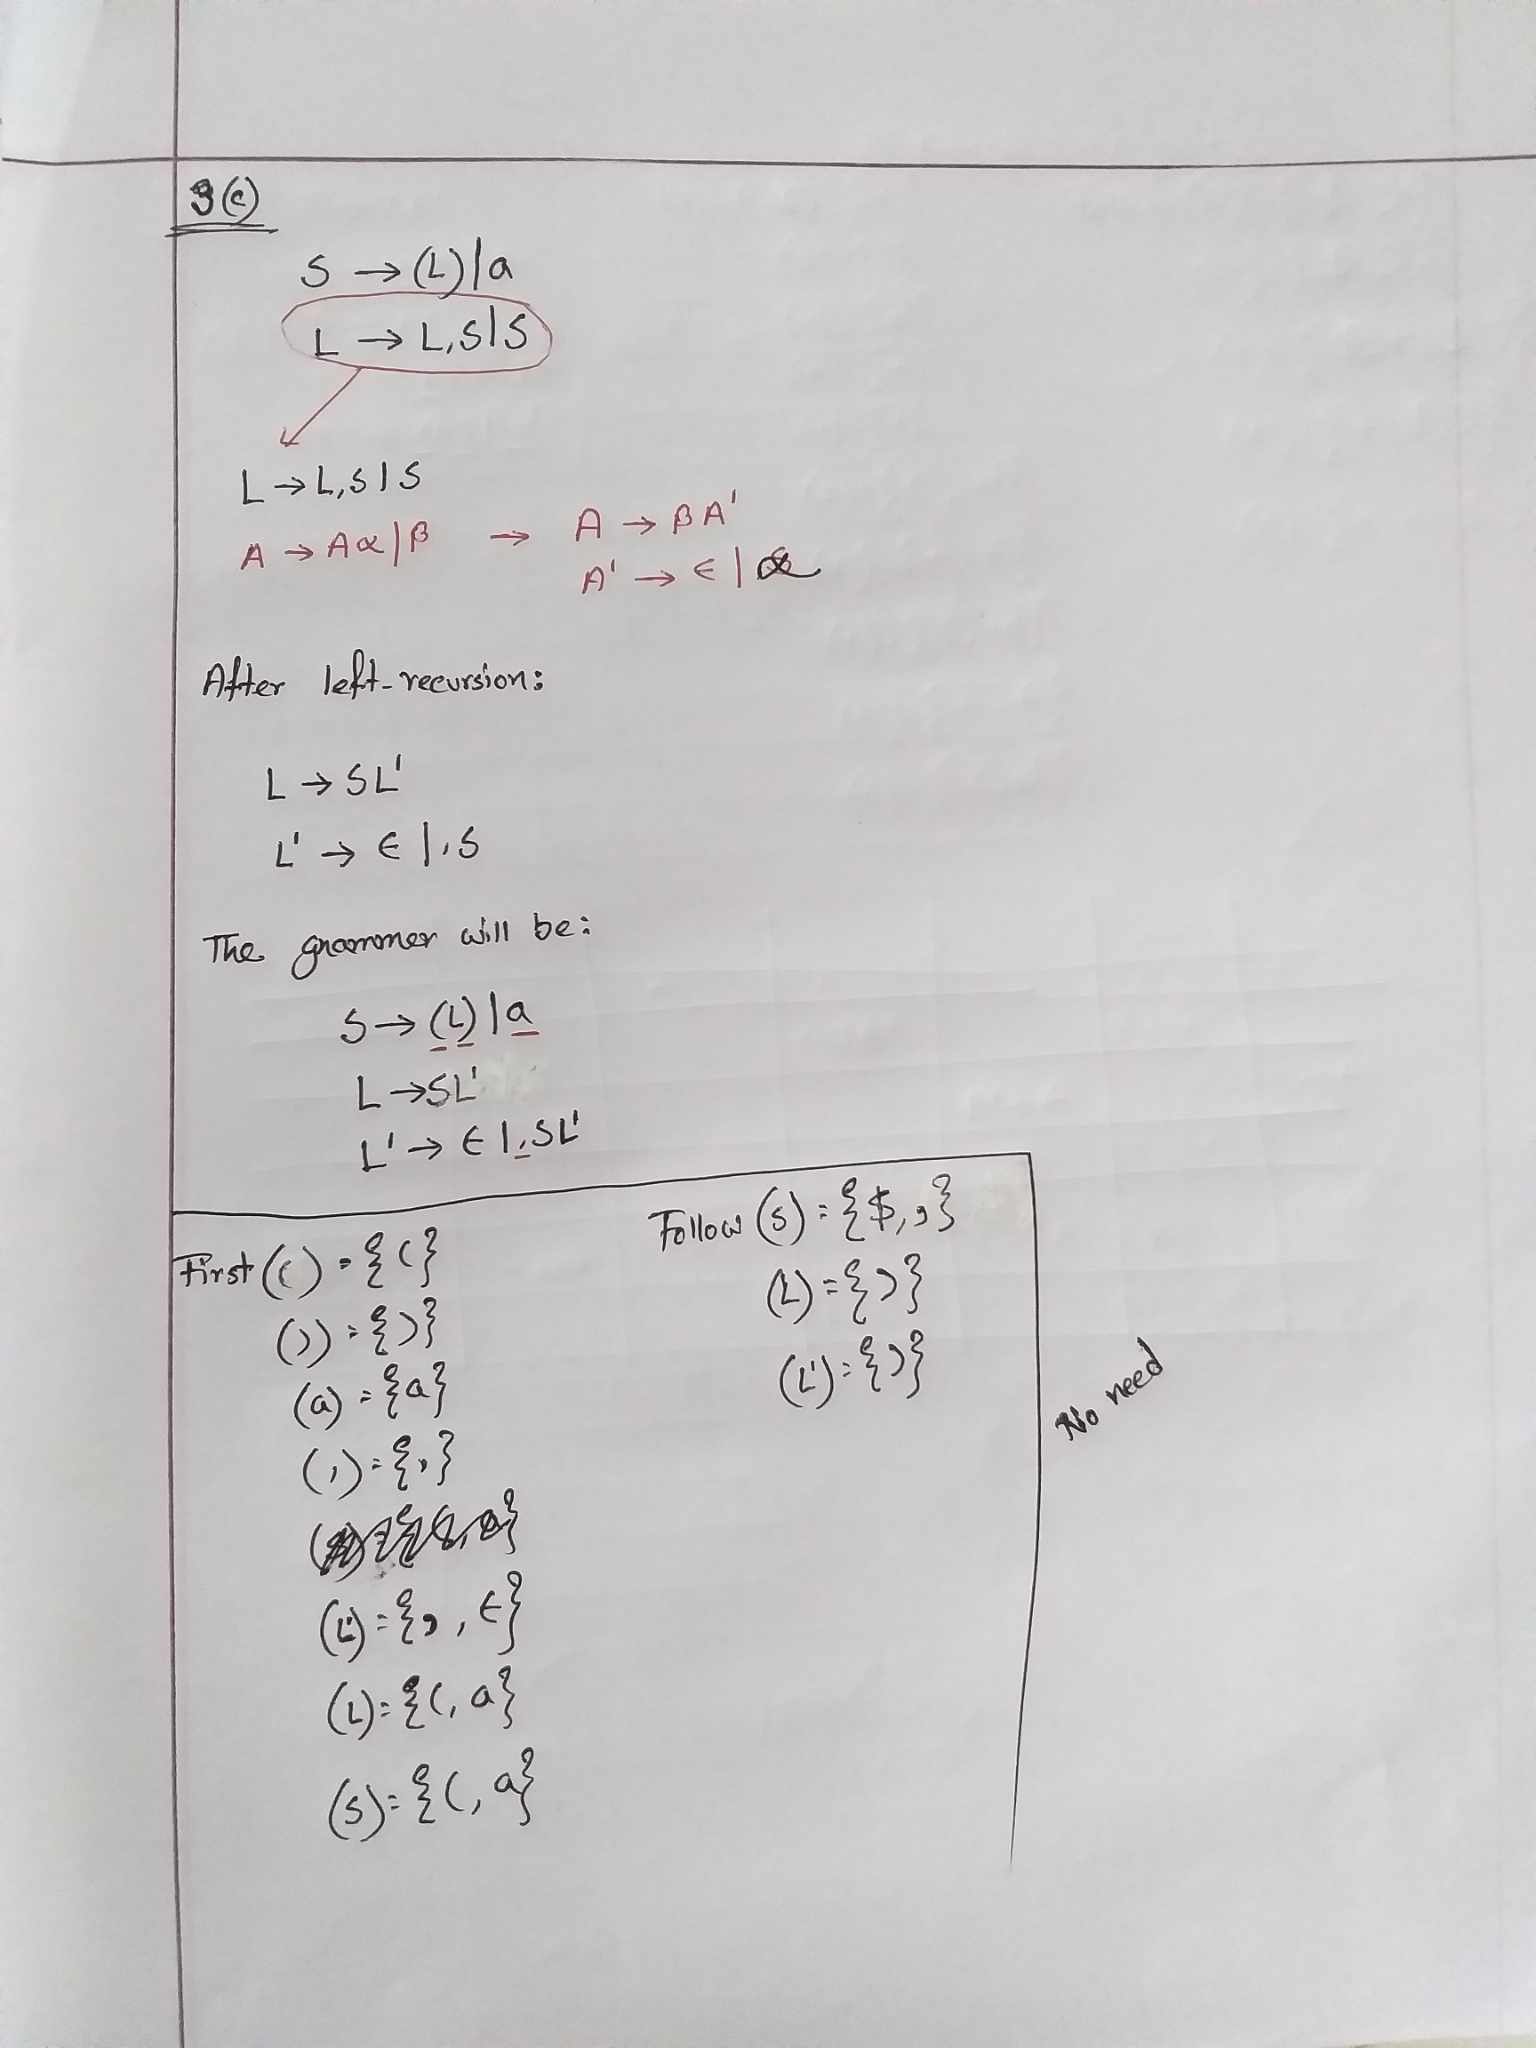 3(c)
S → (L)|a
L → L,S|S
L → L,S|S
A → Aα|β → A → βA'
A' → ϵ|α
After left-recursion:
L → SL'
L' → ϵ|,S
The grammer will be:
S → (L)|a
L → SL'
L' → ϵ|,SL'
First (() = {(}
()) = {)}
(a) = {a}
(,) = {,}
(L') = {,, ϵ}
(L) = {(, a}
(S) = {(, a}
Follow (S) = {$, ,}
(L) = {)}
(L') = {)}
No need